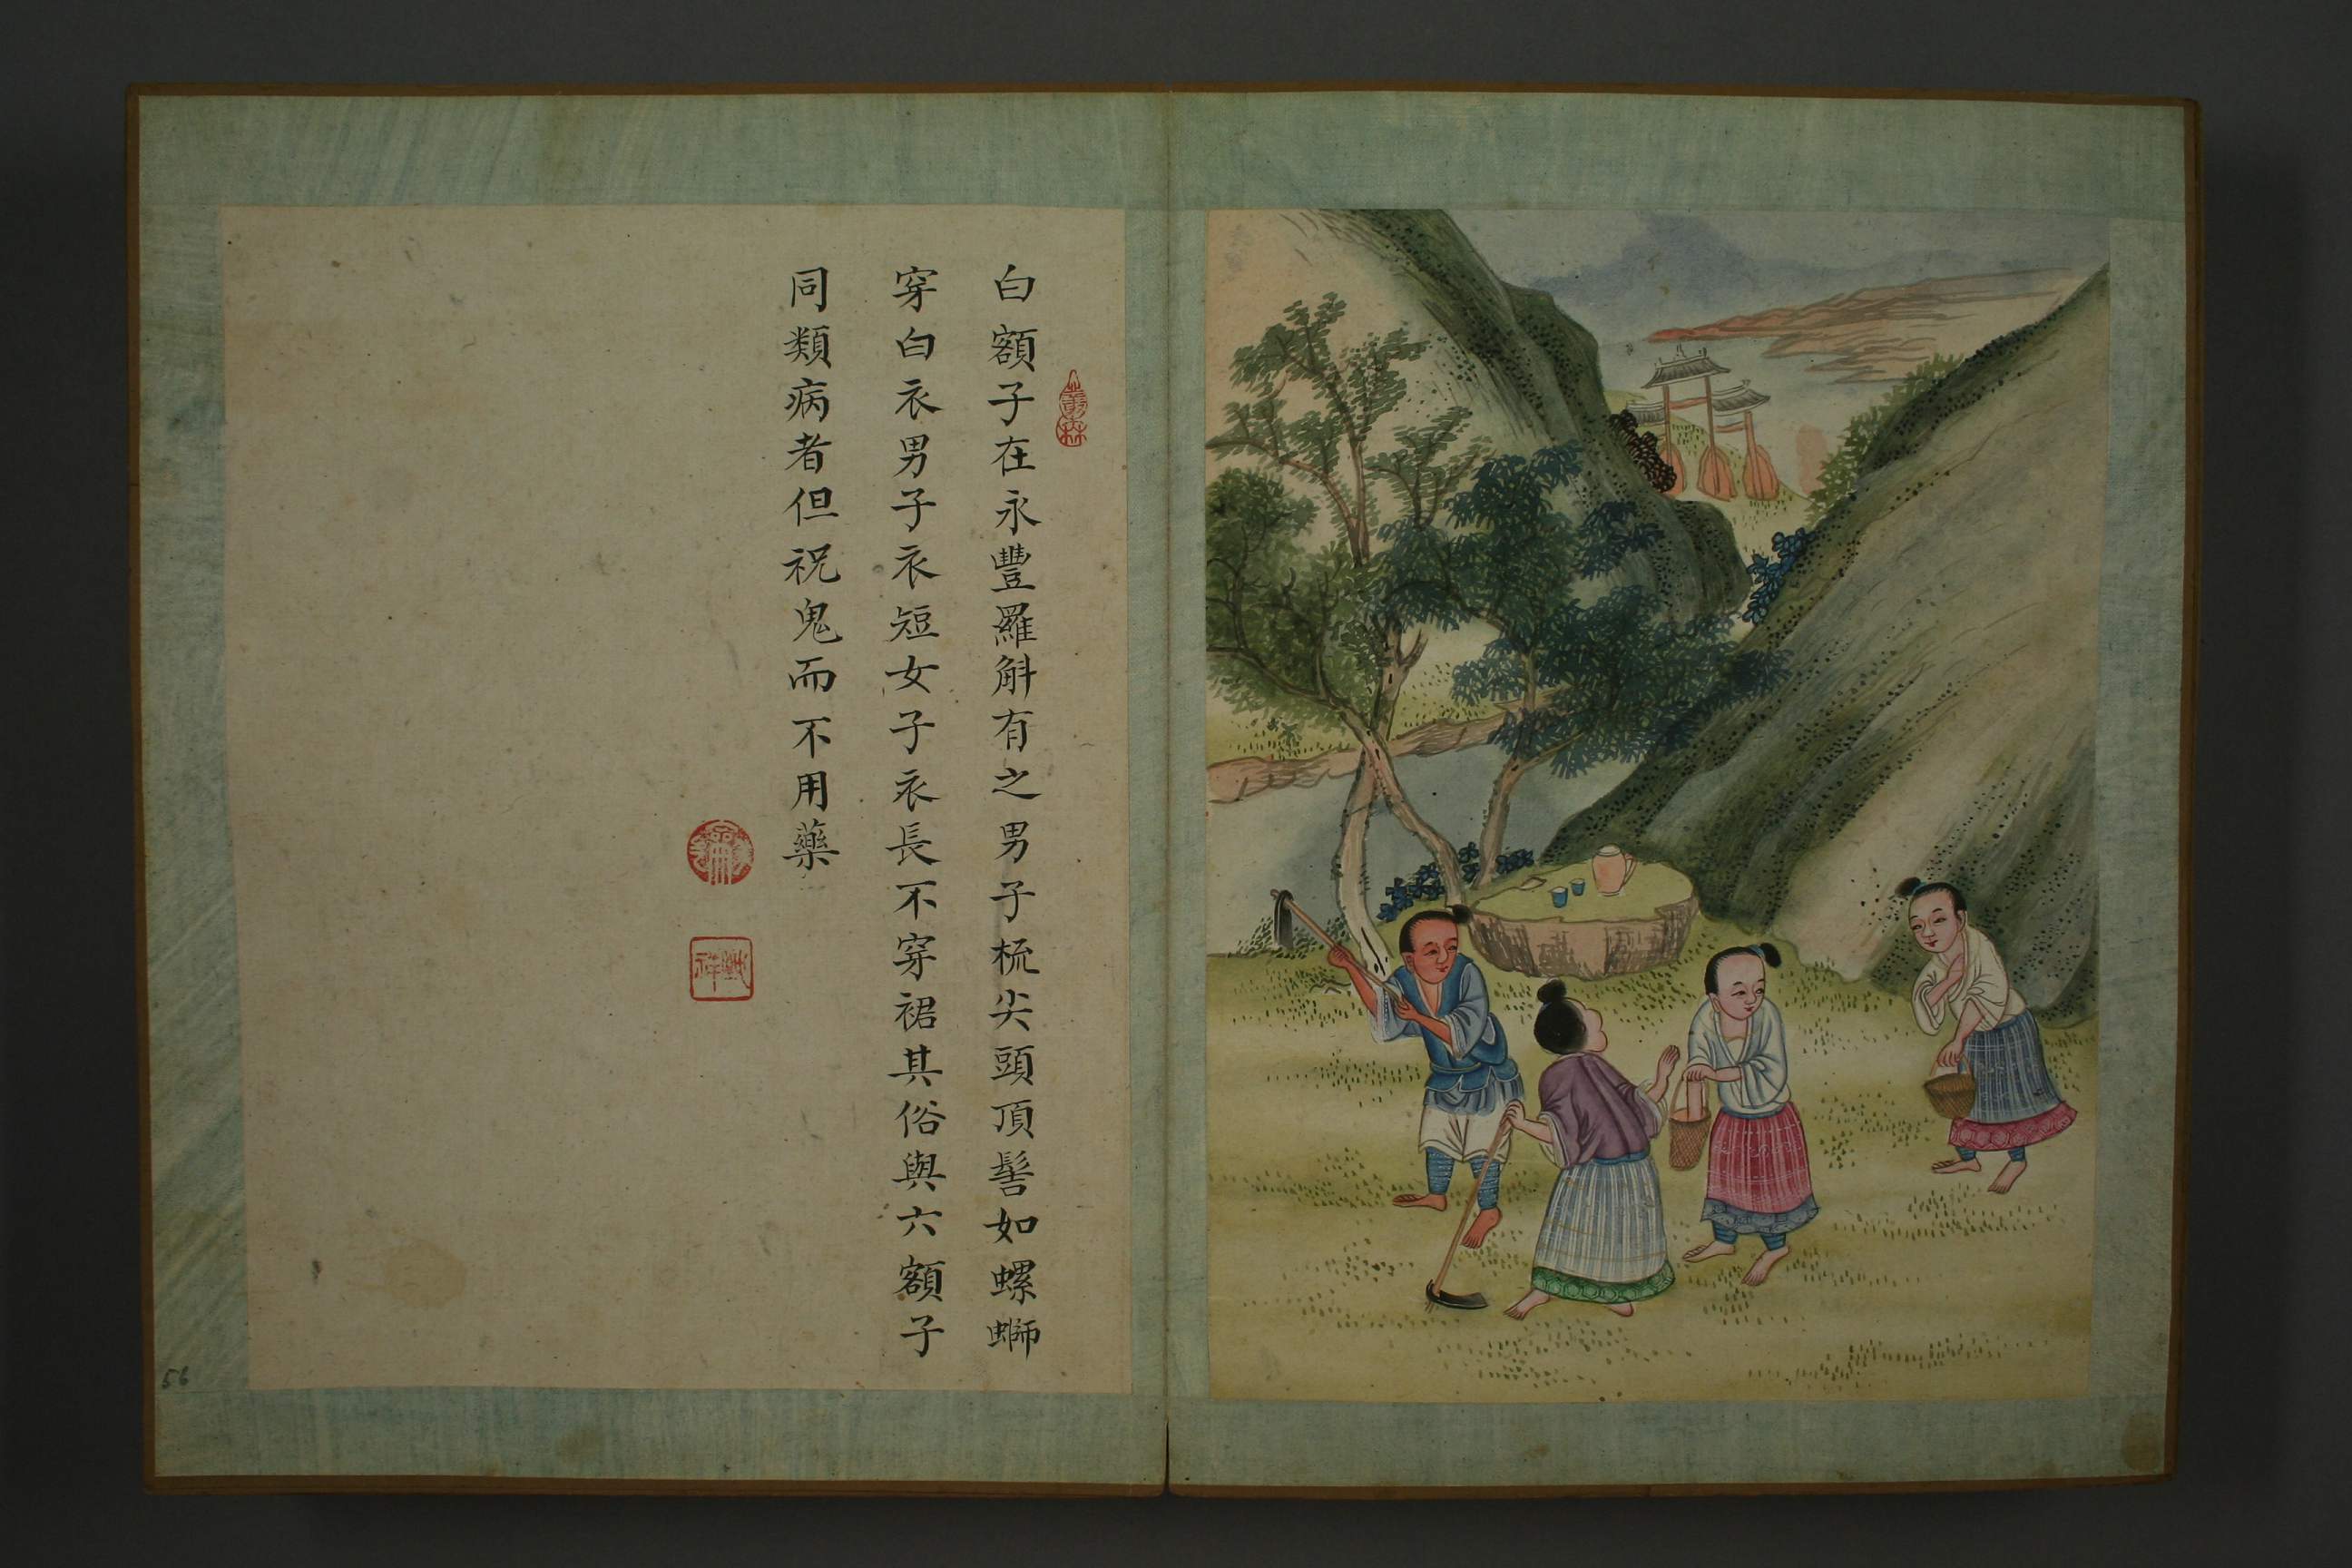 白額子在永豐羅斛有之男子梳尖頭頂髻如螺螄
穿白衣男子衣短女子衣長不穿裙其俗與六額子
同類病者但祝鬼而不用藥
56